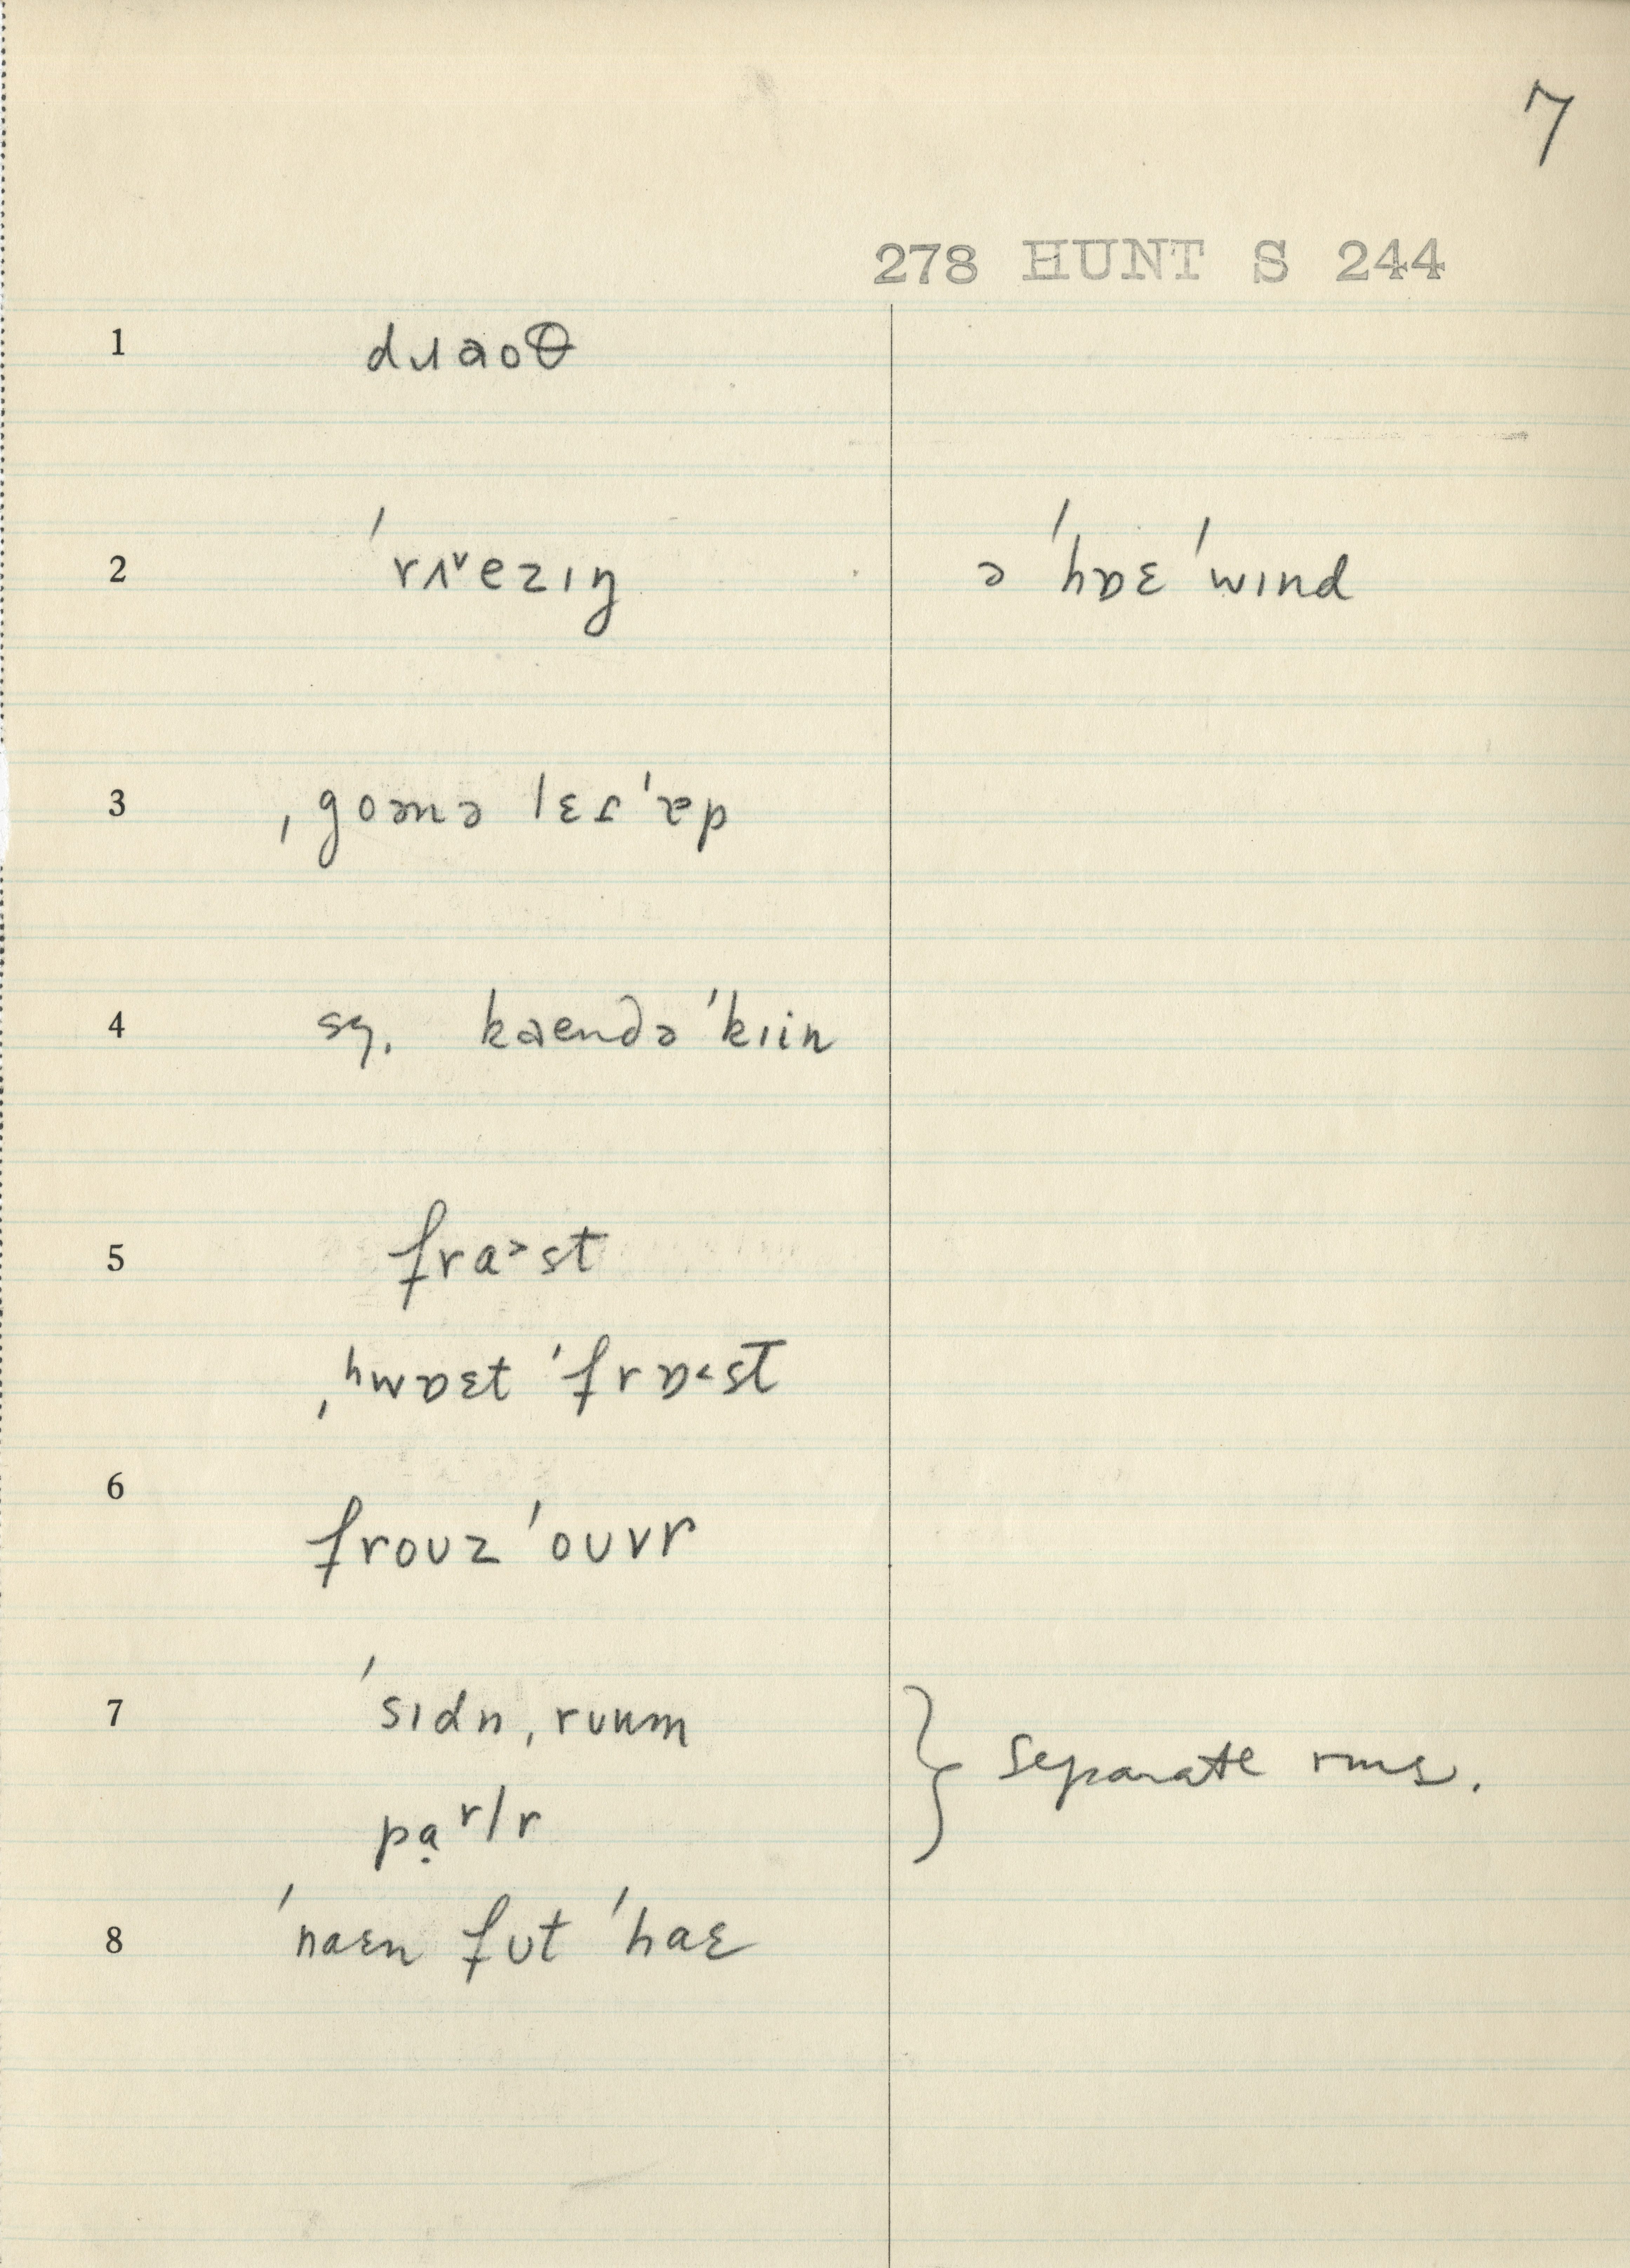 7
278 HUNT S 244
1 dɹɑoθ
2 ˈrʌᵛezɪŋ ə ˈhɒɛ ˈwɪnd
3 ˌgoənə lɛs ˈɐp
4 sq. kaendə ˈkɪin
5 fra˃st
ˌʰwɒɛt ˈfrɒ˂st
6 froʊz ˈoʊvr
7 ˈsɪdn ˌrʊum } separate rms.
pạʳlr
8 ˈnaɛn fʊt ˈhaɛ